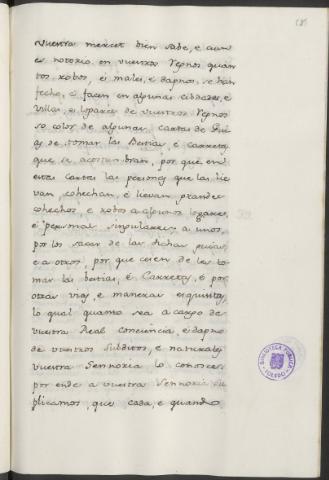 vuestra mercet bien sabe, e aun
es notorio en vuestros Regnos quan
tos robos, e males, e dapnos se han
fecho, e facen en algunas cibdades, e
villas, e logares de vuestros Regnos
so color de algunas cartas de Gui
as de tomar las Bestias, e carretas
que se acostumbran, por que en
estas cartas las personas que las lie
van cohechan, e lievan grandes
cohechos, e robos a algunos logares,
e personas singulares a unos,
por los sacar de las dichas guias,
e a otros, por que cesen de les to
mar las bestias, e Carretas, e por
otras vias, e maneras exquisitas,
lo qual quanto sea a cargo de
vuestra Real conciencia, e dapno
de vuestros subditos, e naturales
vuestra Sennoria lo conosce,
por ende a vuestra Sennoria su
plicamos, que cada, e quando
BIBLIOTECA PUBLICA
TOLEDO